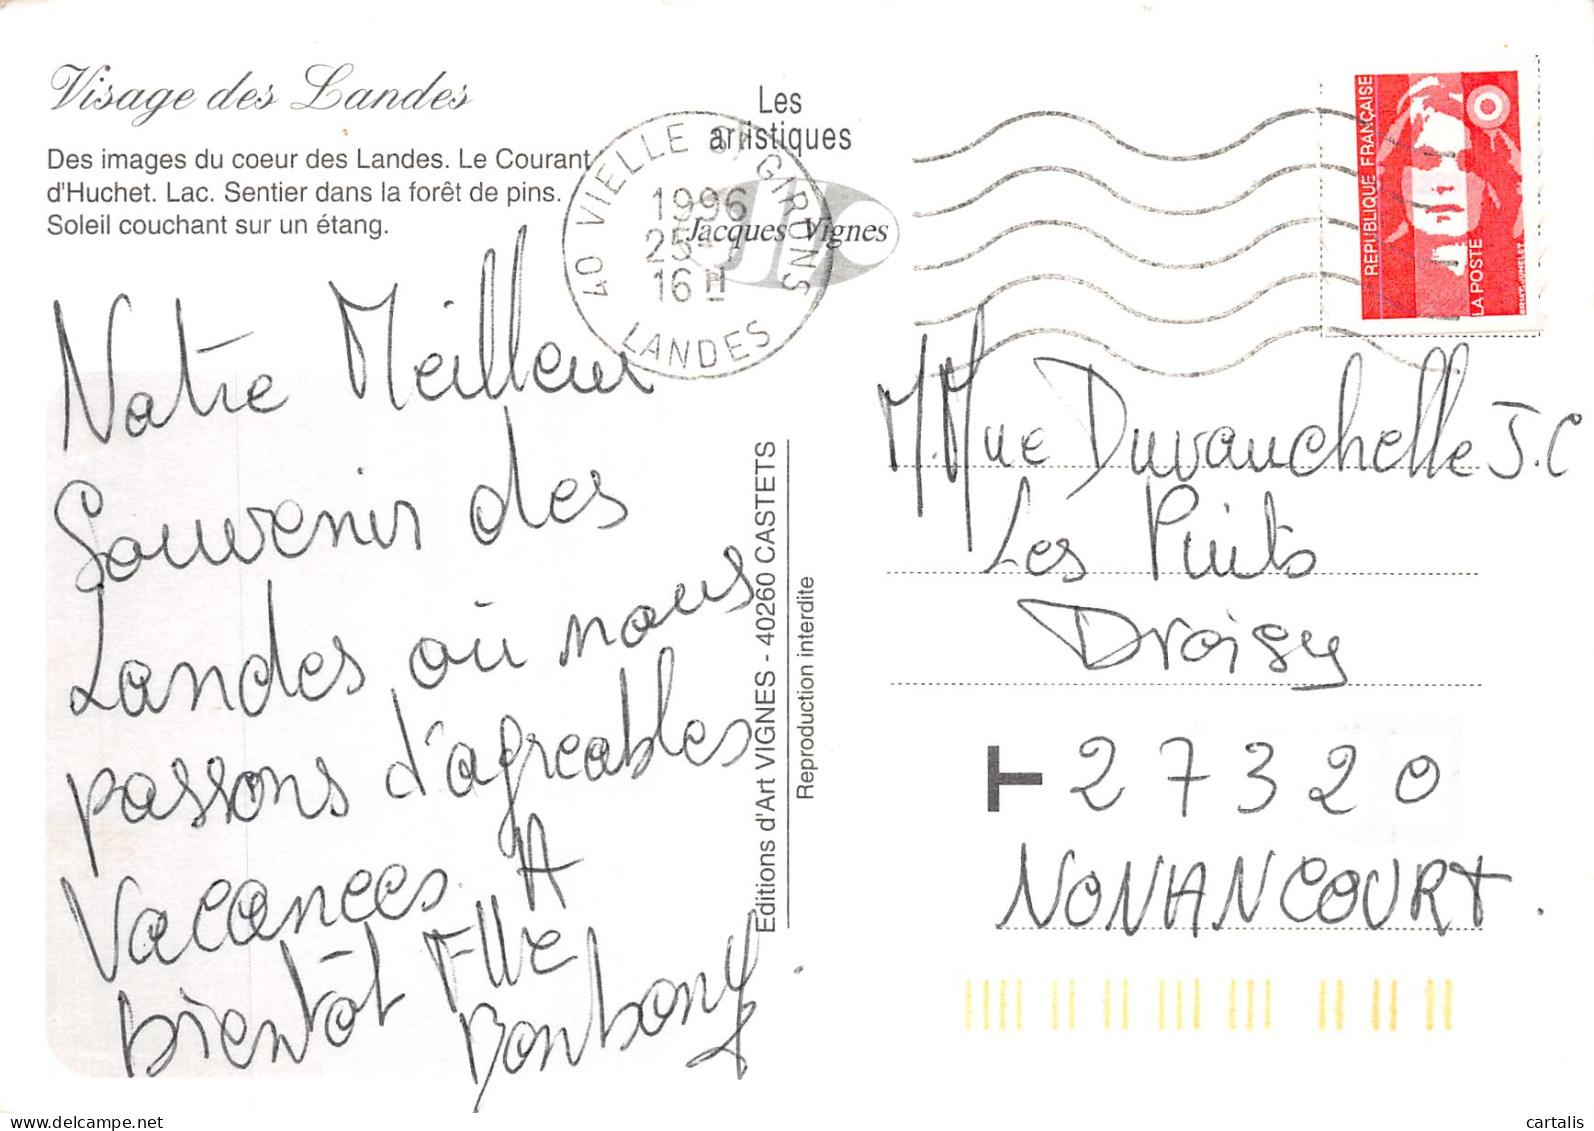 Visage des Landes
Des images du coeur des Landes. Le Courant
d'Huchet. Lac. Sentier dans la forêt de pins.
Soleil couchant sur un étang.
Les
artistiques
Jacques Vignes
40 VIELLE ST GIRONS
1996
25
16 H
LANDES
REPUBLIQUE FRANÇAISE
LA POSTE
Notre Meilleur
Souvenir des
Landes où nous
passons d'agreables
Vacances. A
bientôt Flle
Editions d'Art VIGNES - 40260 CASTETS
Reproduction interdite
M.Mme Duvauchelle J.C
Les Puits
Droisy
T 27320
NONANCOURT.
www.delcampe.net
cartalis